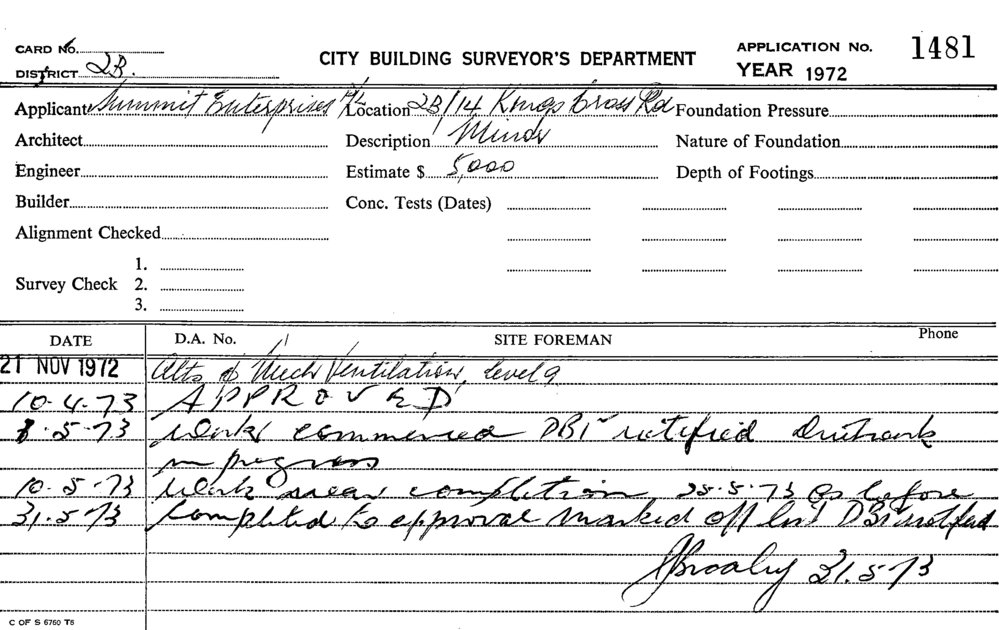 CARD No.
CITY BUILDING SURVEYOR'S DEPARTMENT
APPLICATION No. 1481
DISTRICT 2B.
YEAR 1972
Applicant Summit Enterprises P/L Location 2B/14 Kings Cross Rd Foundation Pressure
Architect Description Minor Nature of Foundation
Engineer Estimate $ 5,000 Depth of Footings
Builder Conc. Tests (Dates)
Alignment Checked
1.
Survey Check 2.
3.
DATE D.A. No. SITE FOREMAN Phone
21 NOV 1972 Alts & Mech Ventilation, level 9
10-4-73 APPROVED
8-5-73 Work commenced DBI notified
in progress
10-5-73 Work near completion, 25-5-73 as before
31-5-73 Completed to approval marked off DBI notified
31.5.73
C OF S 6760 T8